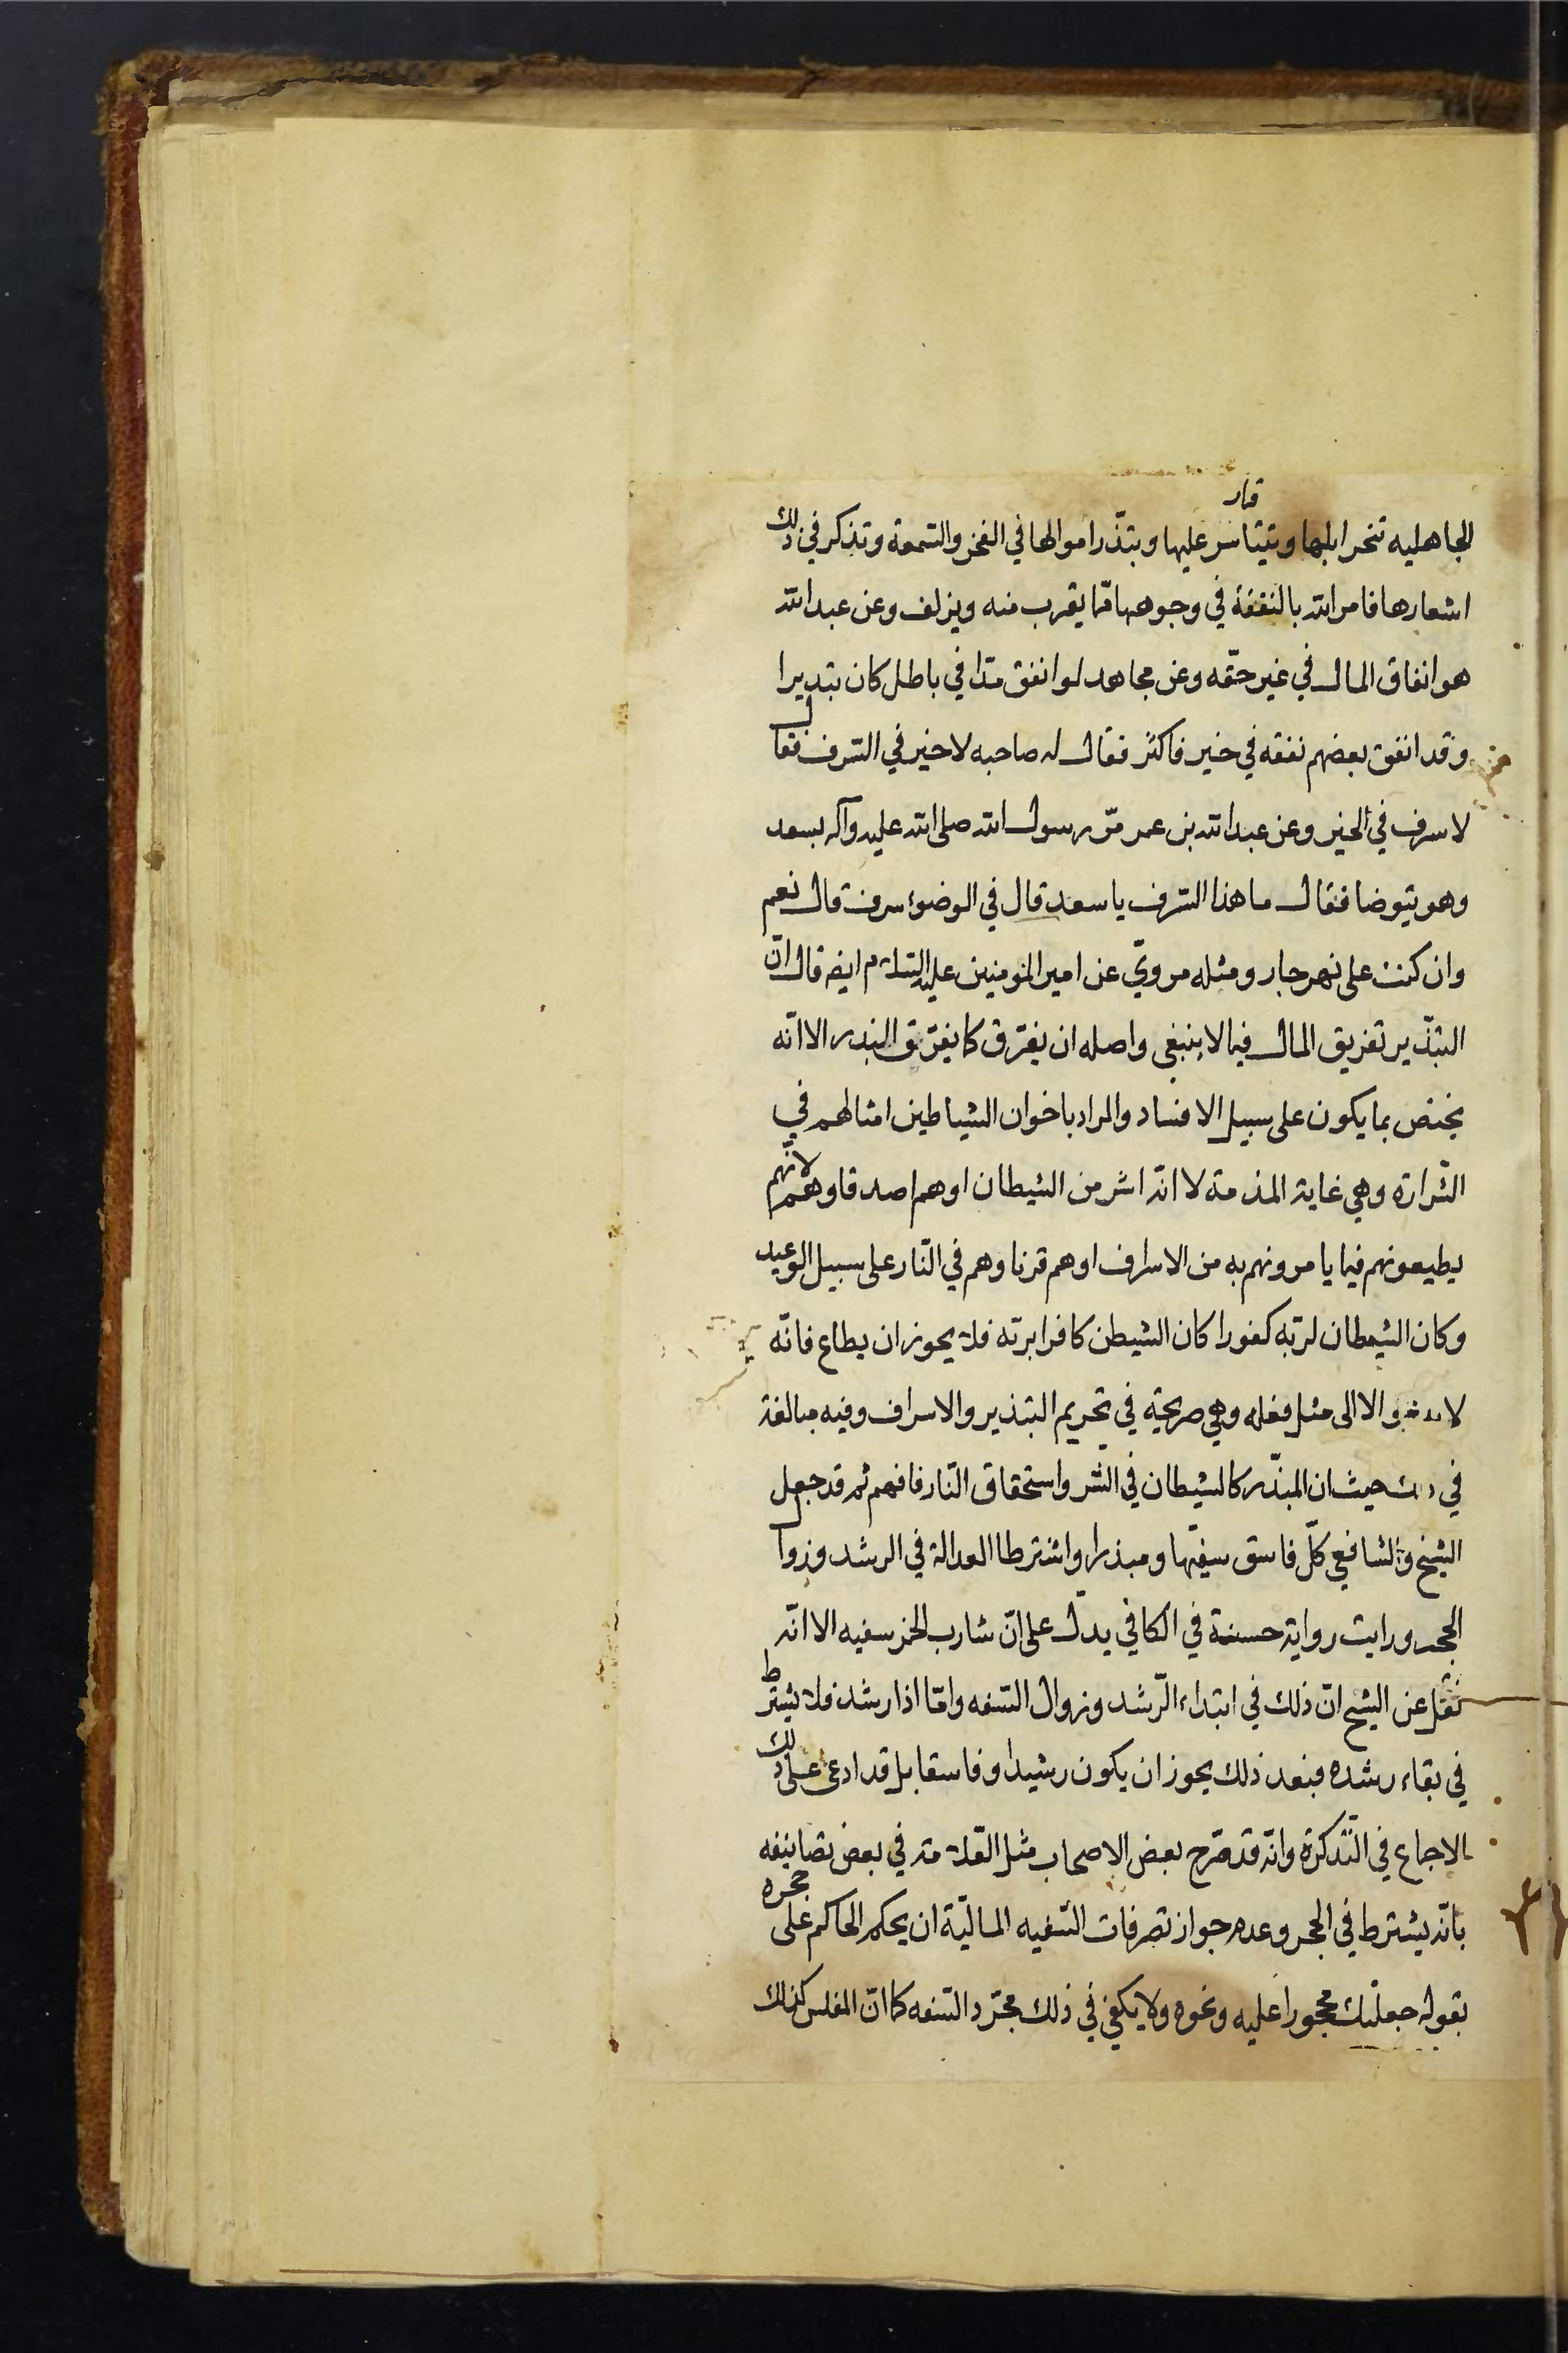 قمار
الجاهليه تنحر ابلها وتتياسر عليها وتبذّر اموالها في الفخر والسّمعة وتذكر في ذلك
اشعارها فامر الله بالنفقة في وجوهها ممّا يقرب منه ويزلف وعن عبد الله
هو انفاق المال في غير حقّه وعن مجاهد لو انفق مدّا في باطل كان تبذيرا
وقد انفق بعضهم نفقه في خير فاكثر فقال له صاحبه لا خير في السّرف فقال
لا سرف في الخير وعن عبد الله بن عمر مرّ رسول الله صلى الله عليه وآله بسعد
وهو يتوضا فقال ما هذا السّرف يا سعد قال في الوضوء سرف قال نعم
وان كنت على نهر جار ومثله مرويّ عن امير المؤمنين عليه السّلام ايضه قال انّ
التبذّير تفريق المال فيما لا ينبغى واصله ان يفرّق كما يفرّق البذر الا انّه
يختص بما يكون على سبيل الافساد والمراد باخوان الشياطين امثالهم في
الشّرارة وهي غاية المذمة لا انّه اشر من الشيطان او هم اصدقاوهم لانّهم
يطيعونهم فيما يامرونهم به من الاسراف او هم قرناوهم في النّار على سبيل الوعيد
وكان الشيطان لربّه كفورا كان الشيطن كافرا بربّه فلا يجوز ان يطاع فانّه
لا يدعو الا الى مثل فعله وهي صريحة في تحريم التبذير والاسراف وفيه مبالغة
في ذلك حيث ان المبذّر كالشيطان في الشر واستحقاق النّار فافهم ثم قد جعل
الشيخ والشافعي كلّ فاسق سفيها ومبذرا واشترطا العدالة في الرشد وزوال
الحجر ورايت رواية حسنة في الكافي يدلّ على انّ شارب الخمر سفيه الا انّه
نقل عن الشيخ انّ ذلك في ابتداء الرّشد وزوال السّفه وامّا اذا رشد فلا يشترط
في بقاء رشده فبعد ذلك يجوز ان يكون رشيدا وفاسقا بل قد ادعى على ذلك
الاجماع في التّذكرة وانّه قد صرّح بعض الاصحاب مثل العّلامة في بعض تصانيفه
بانّه يشترط في الحجر وعدم جواز تصرفات السّفيه الماليّة ان يحكم الحاكم على حجره
بقوله جعلتك محجورا عليه ونحوه ولا يكفي في ذلك مجرّد السّفه كما انّ المفلس كذلك